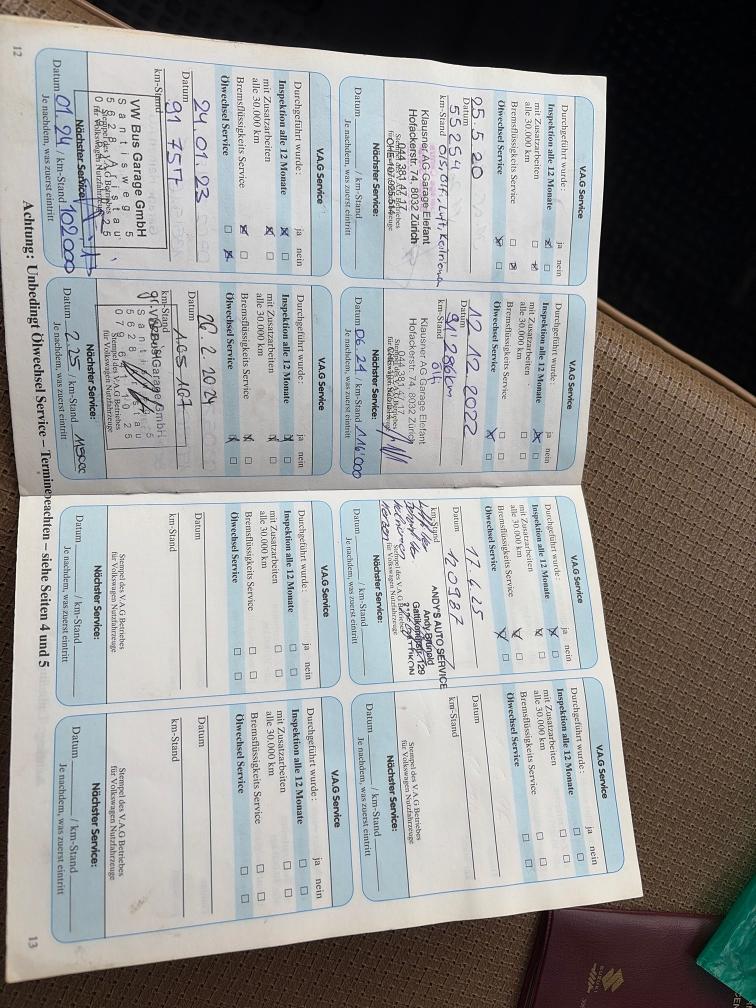 V.A.G Service
Durchgeführt wurde :
ja nein
Inspektion alle 12 Monate
mit Zusatzarbeiten
alle 30.000 km
Bremsflüssigkeits Service
Ölwechsel Service
05.5.20
Datum
55254
km-Stand
Klausner AG Garage Elefant
Hofackerstr. 74, 8032 Zürich
044 381 47 17
für Volkswagen Nutzfahrzeuge
Nächster Service:
Datum / km-Stand
Je nachdem, was zuerst eintritt
V.A.G Service
Durchgeführt wurde :
ja nein
Inspektion alle 12 Monate
mit Zusatzarbeiten
alle 30.000 km
Bremsflüssigkeits Service
Ölwechsel Service
12.12.2022
Datum
91'286km
km-Stand
Klausner AG Garage Elefant
Hofackerstr. 74, 8032 Zürich
044 381 47 17
für Volkswagen Nutzfahrzeuge
Nächster Service:
Datum 06.24 / km-Stand 116'000
Je nachdem, was zuerst eintritt
V.A.G Service
Durchgeführt wurde :
ja nein
Inspektion alle 12 Monate
mit Zusatzarbeiten
alle 30.000 km
Bremsflüssigkeits Service
Ölwechsel Service
17.6.25
Datum
120987
km-Stand
ANDY'S AUTO SERVICE
Stempel des V.A.G Betriebes
für Volkswagen Nutzfahrzeuge
Nächster Service:
Datum / km-Stand
Je nachdem, was zuerst eintritt
V.A.G Service
Durchgeführt wurde :
ja nein
Inspektion alle 12 Monate
mit Zusatzarbeiten
alle 30.000 km
Bremsflüssigkeits Service
Ölwechsel Service
Datum
km-Stand
Stempel des V.A.G Betriebes
für Volkswagen Nutzfahrzeuge
Nächster Service:
Datum / km-Stand
Je nachdem, was zuerst eintritt
V.A.G Service
Durchgeführt wurde :
ja nein
Inspektion alle 12 Monate
mit Zusatzarbeiten
alle 30.000 km
Bremsflüssigkeits Service
Ölwechsel Service
24.01.23
Datum
91757
km-Stand
VW Bus Garage GmbH
Santiweg 5
5628 Aristau
Stempel des V.A.G Betriebes
für Volkswagen Nutzfahrzeuge
Nächster Service:
Datum 01.24 / km-Stand 102000
Je nachdem, was zuerst eintritt
V.A.G Service
Durchgeführt wurde :
ja nein
Inspektion alle 12 Monate
mit Zusatzarbeiten
alle 30.000 km
Bremsflüssigkeits Service
Ölwechsel Service
26.2.2024
Datum
km-Stand
Stempel des V.A.G Betriebes
für Volkswagen Nutzfahrzeuge
Nächster Service:
Datum 2.25 / km-Stand
Je nachdem, was zuerst eintritt
V.A.G Service
Durchgeführt wurde :
ja nein
Inspektion alle 12 Monate
mit Zusatzarbeiten
alle 30.000 km
Bremsflüssigkeits Service
Ölwechsel Service
Datum
km-Stand
Stempel des V.A.G Betriebes
für Volkswagen Nutzfahrzeuge
Nächster Service:
Datum / km-Stand
Je nachdem, was zuerst eintritt
V.A.G Service
Durchgeführt wurde :
ja nein
Inspektion alle 12 Monate
mit Zusatzarbeiten
alle 30.000 km
Bremsflüssigkeits Service
Ölwechsel Service
Datum
km-Stand
Stempel des V.A.G Betriebes
für Volkswagen Nutzfahrzeuge
Nächster Service:
Datum / km-Stand
Je nachdem, was zuerst eintritt
Achtung: Unbedingt Ölwechsel Service – Termine beachten – siehe Seiten 4 und 5
12
13
SUZUKI